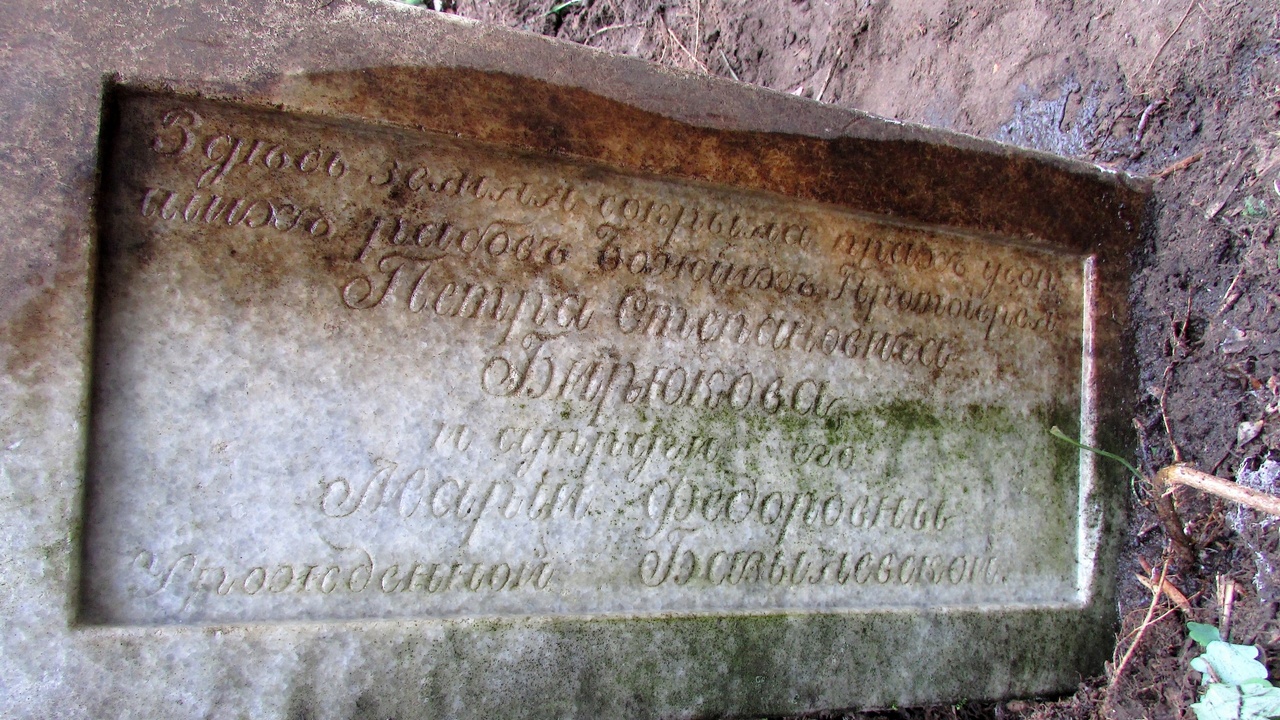 Здѣсь земля сокрыла прахъ усоп
шихъ рабовъ Божіихъ Протоіерея
Петра Степановича
Бирюкова,
и супруги его
Маріи Федоровны
Урожденной